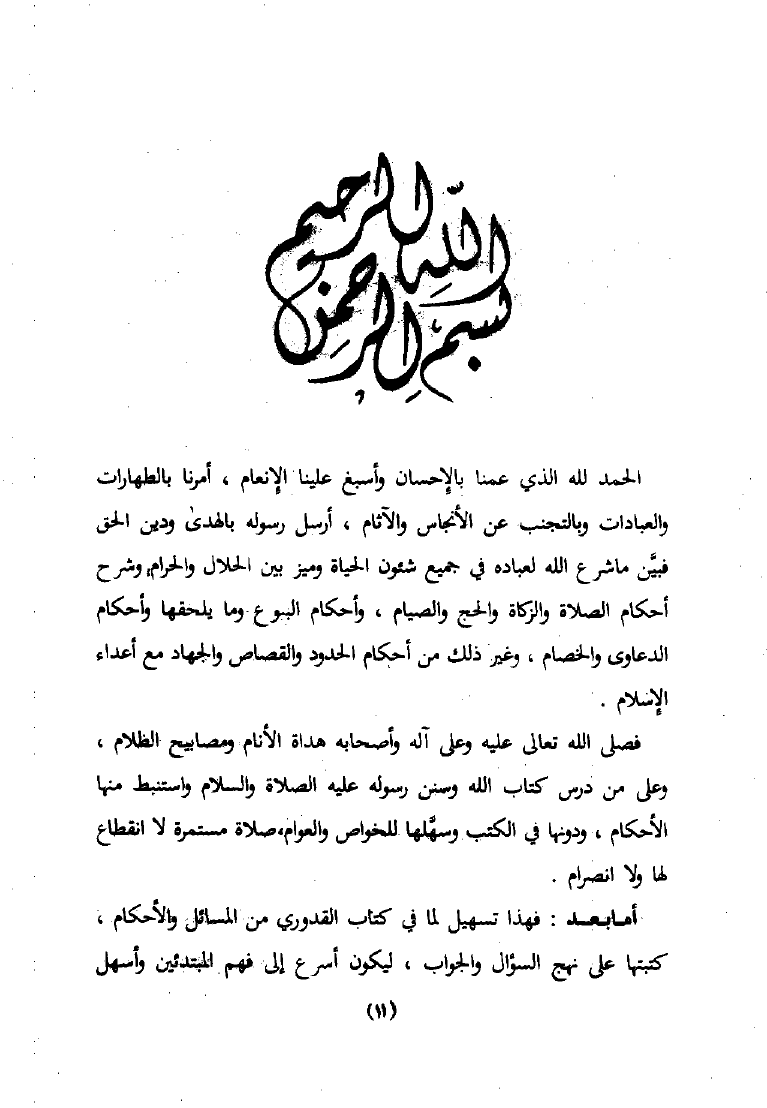 بسم الله الرحمن الرحيم
الحمد لله الذي عمنا بالإحسان وأسبغ علينا الإنعام ، أمرنا بالطهارات
والعبادات وبالتجنب عن الأنجاس والآثام ، أرسل رسوله بالهدىٰ ودين الحق
فبيَّن ماشرع الله لعباده في جميع شئون الحياة وميز بين الحلال والحرام، وشرح
أحكام الصلاة والزكاة والحج والصيام ، وأحكام البيوع وما يلحقها وأحكام
الدعاوى والخصام ، وغير ذلك من أحكام الحدود والقصاص والجهاد مع أعداء
الإسلام .
فصلى الله تعالى عليه وعلى آله وأصحابه هداة الأنام ومصابيح الظلام ،
وعلى من درس كتاب الله وسنن رسوله عليه الصلاة والسلام واستنبط منها
الأحكام ، ودونها في الكتب وسهَّلها للخواص والعوام، صلاة مستمرة لا انقطاع
لها ولا انصرام .
أمـابـعـد : فهذا تسهيل لما في كتاب القدوري من المسائل والأحكام ،
كتبتها على نهج السؤال والجواب ، ليكون أسرع إلى فهم المبتدئين وأسهل
(١١)